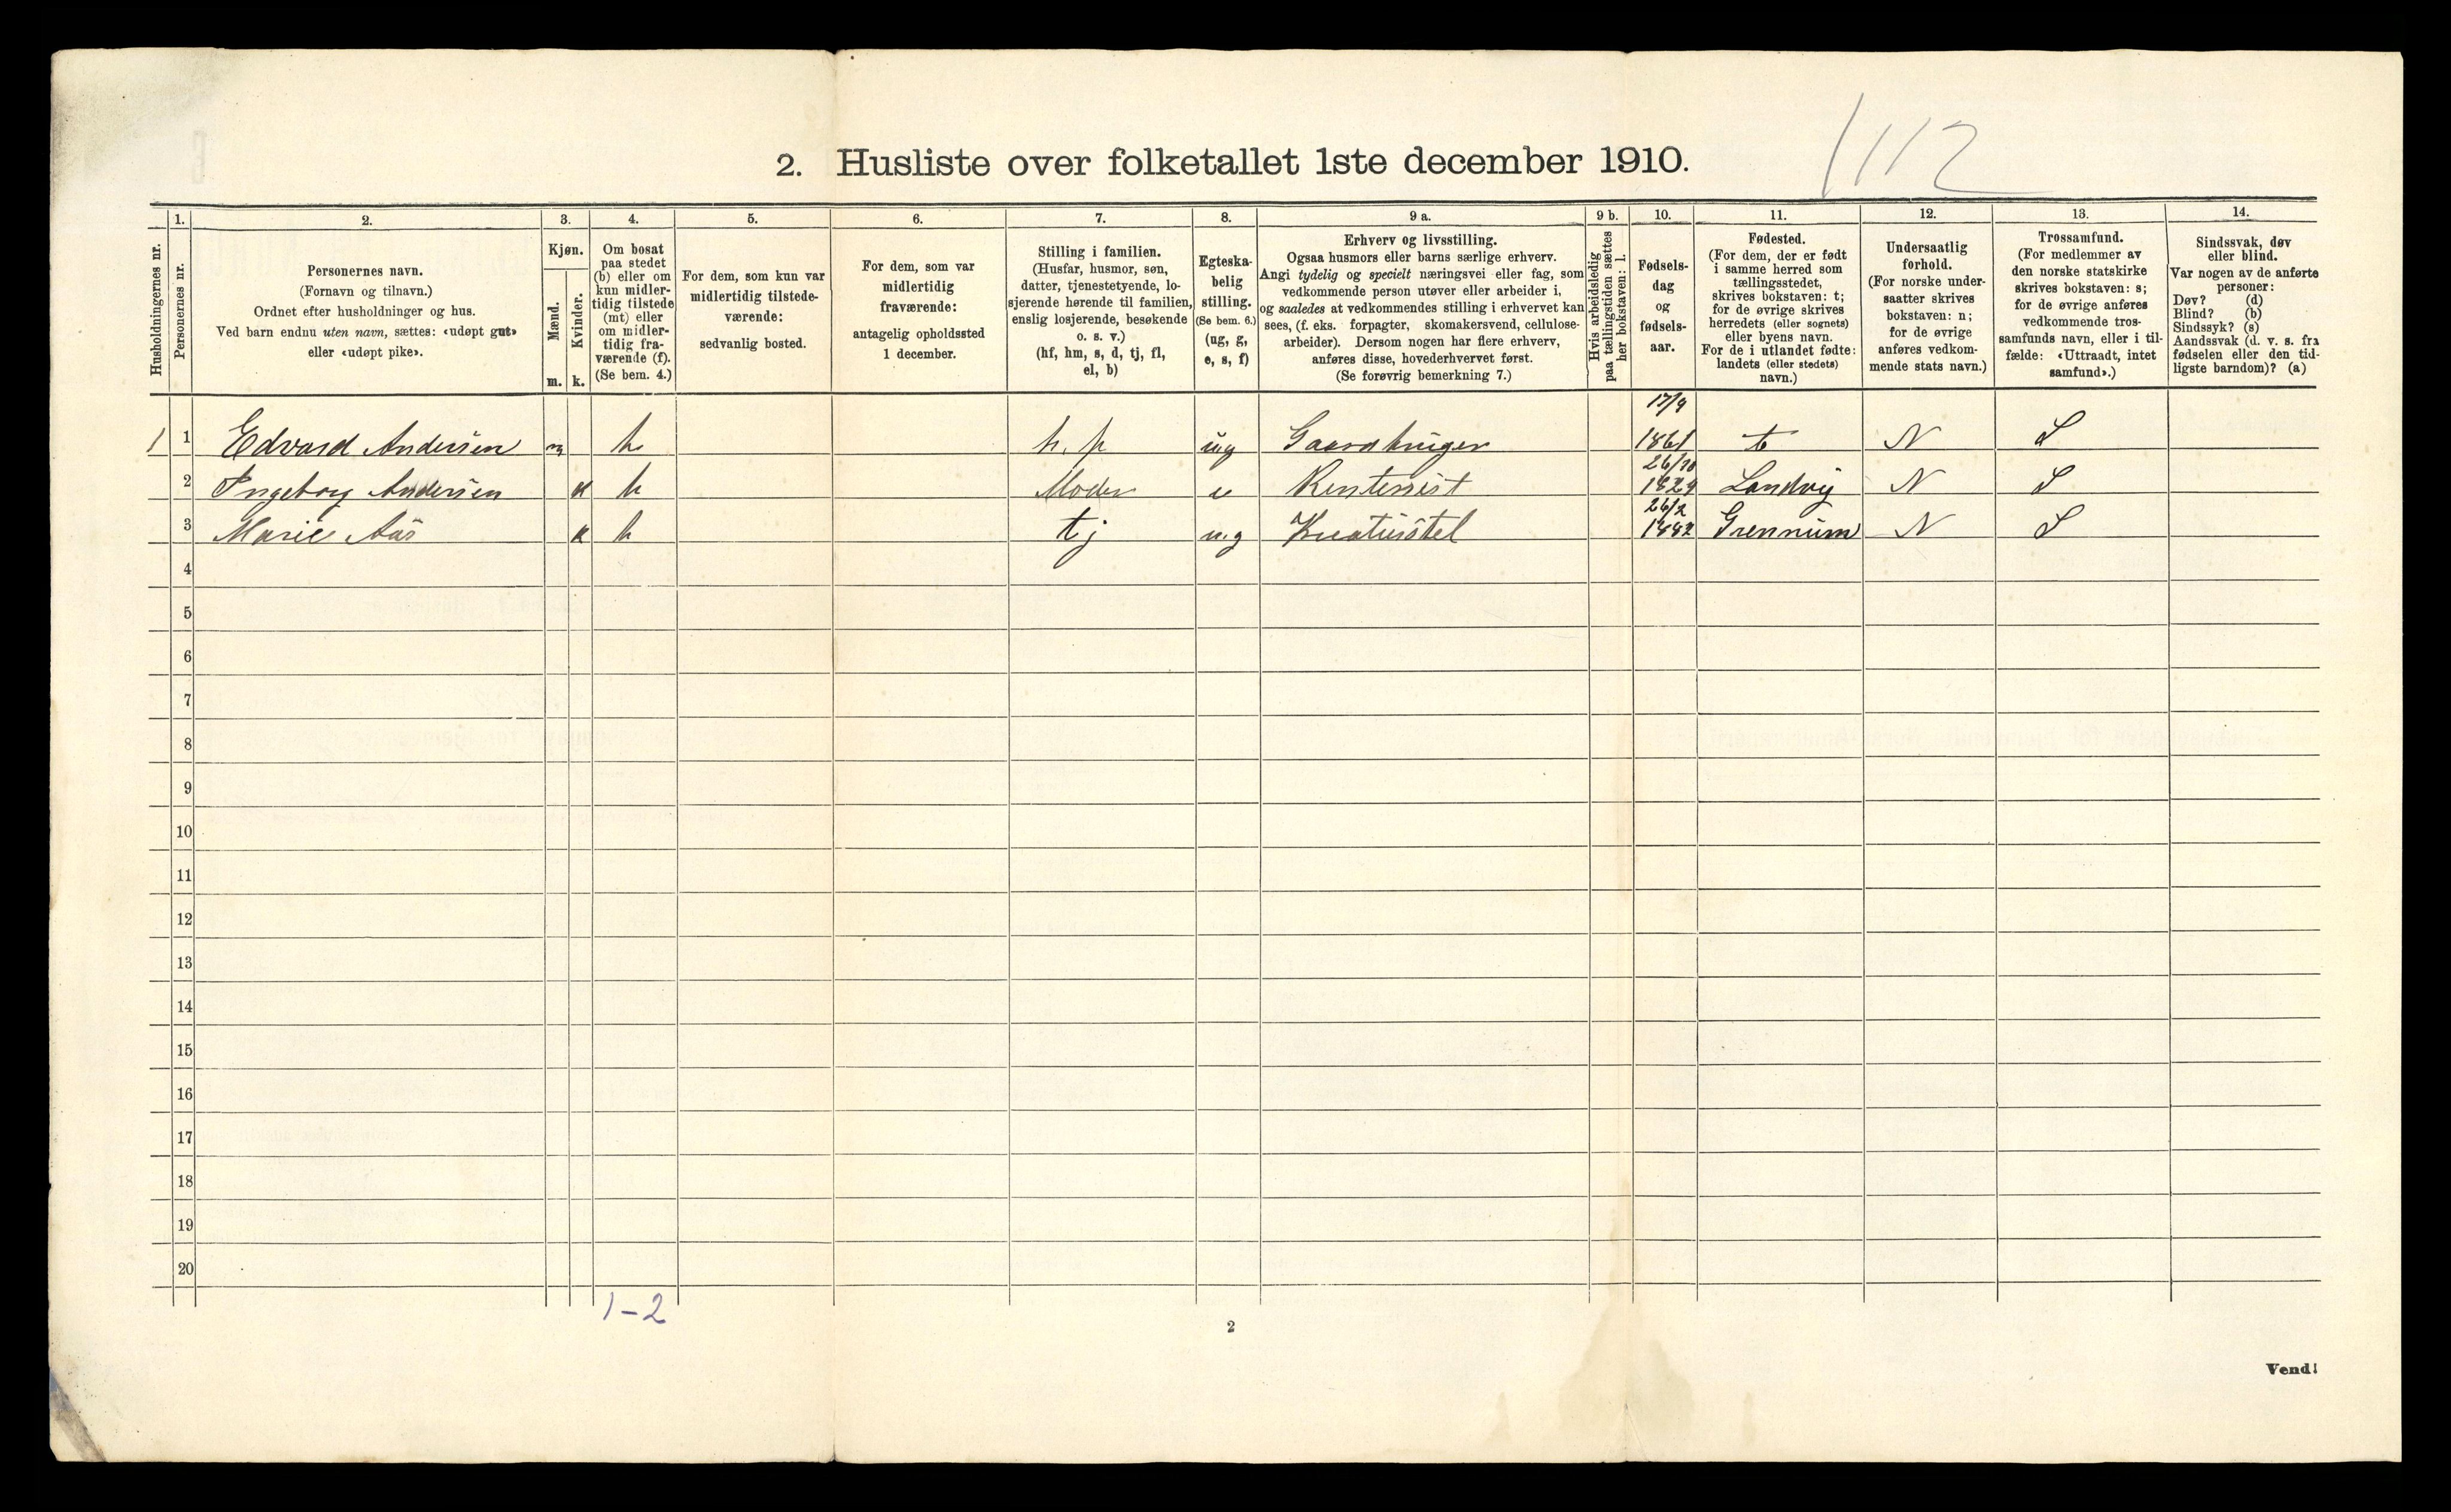 1112
2. Husliste over folketallet 1ste december 1910.
Husholdningernes nr.
1.
Personernes nr.
2.
Personernes navn.
(Fornavn og tilnavn.)
Ordnet efter husholdninger og hus.
Ved barn endnu uten navn, sættes: «udøpt gut»
eller «udøpt pike».
3.
Kjøn.
Mænd.
m.
Kvinder.
k.
4.
Om bosat
paa stedet
(b) eller om
kun midler-
tidig tilstede
(mt) eller
om midler-
tidig fra-
værende (f).
(Se bem. 4.)
5.
For dem, som kun var
midlertidig tilstede-
værende:
sedvanlig bosted.
6.
For dem, som var
midlertidig
fraværende:
antagelig opholdssted
1 december.
7.
Stilling i familien.
(Husfar, husmor, søn,
datter, tjenestetyende, lo-
sjerende hørende til familien,
enslig losjerende, besøkende
o. s. v.)
(hf, hm, s, d, tj, fl,
el, b)
8.
Egteska-
belig
stilling.
(Se bem. 6.)
(ug, g,
e, s, f)
9 a.
Erhverv og livsstilling.
Ogsaa husmors eller barns særlige erhverv.
Angi tydelig og specielt næringsvei eller fag, som
vedkommende person utøver eller arbeider i,
og saaledes at vedkommendes stilling i erhvervet kan
sees, (f. eks. forpagter, skomakersvend, cellulose-
arbeider). Dersom nogen har flere erhverv,
anføres disse, hovederhvervet først.
(Se forøvrig bemerkning 7.)
9 b.
Hvis arbeidsledig
paa tællingstiden sættes
her bokstaven: l.
10.
Fødsels-
dag
og
fødsels-
aar.
11.
Fødested.
(For dem, der er født
i samme herred som
tællingsstedet,
skrives bokstaven: t;
for de øvrige skrives
herredets (eller sognets)
eller byens navn.
For de i utlandet fødte:
landets (eller stedets)
navn.)
12.
Undersaatlig
forhold.
(For norske under-
saatter skrives
bokstaven: n;
for de øvrige
anføres vedkom-
mende stats navn.)
13.
Trossamfund.
(For medlemmer av
den norske statskirke
skrives bokstaven: s;
for de øvrige anføres
vedkommende tros-
samfunds navn, eller i til-
fælde: «Uttraadt, intet
samfund».)
14.
Sindssvak, døv
eller blind.
Var nogen av de anførte
personer:
Døv? (d)
Blind? (b)
Sindssyk? (s)
Aandssvak (d. v. s. fra
fødselen eller den tid-
ligste barndom)? (a)
1 1 Edvard Andersen m b ug Gaardbruger 17/9 1861 t N S
2 Ingeborg Andersen k b Moder e Rentenist 26/10 1829 Landvig N S
3 Marie Aas k b tj ug Kreaturstel 26/2 1882 N S
4
5
6
7
8
9
10
11
12
13
14
15
16
17
18
19
20
1-2
2
Vend!